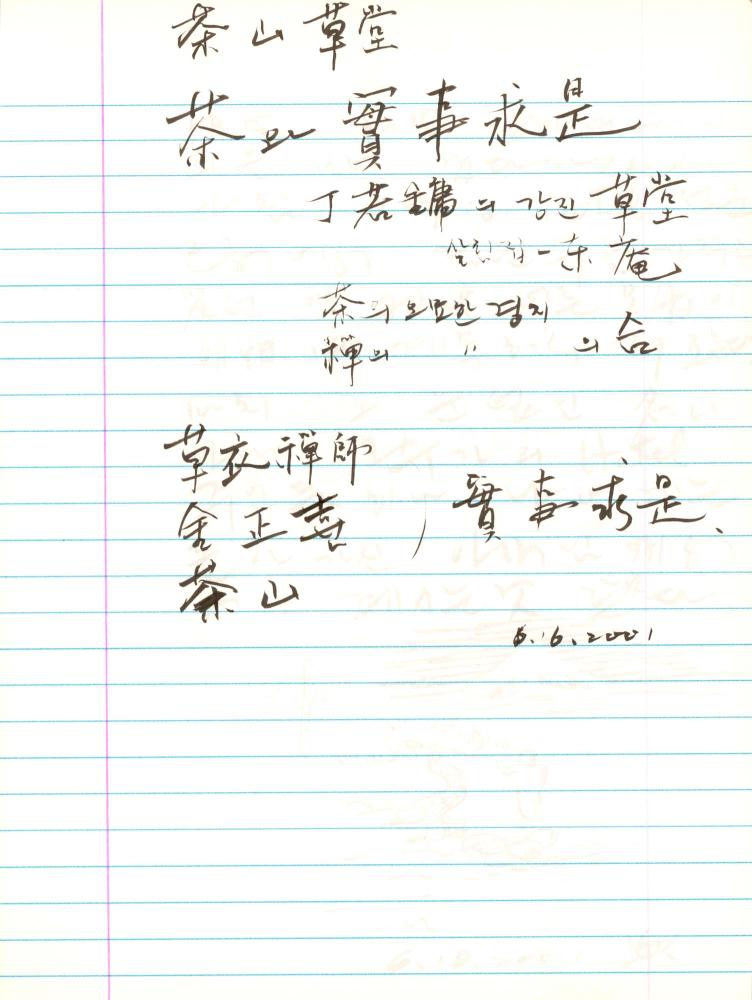 茶山草堂
茶와 實事求是
丁若鏞의 강진 草堂
살림집 - 東庵
茶의 오묘한 경지
禪의 〃 의 合
草衣禪師
金正喜 , 實事求是.
茶山
6.16.2001